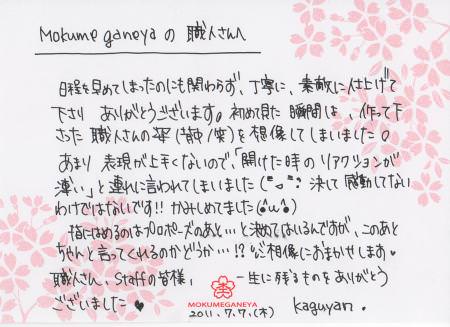 Mokume ganeyaの 職人さんへ
日程を早めてしまったのにも関わらず、丁寧に、素敵に仕上げて
下さり ありがとうございます。初めて見た 瞬間は、作って下
さった 職人さんの姿(背中/笑)を想像してしまいました。
あまり 表現が上手くないので、「開けた時の リアクションが
薄い」と 連れに言われてしまいました 決して 感動してない
わけではないです!! かみしめてました(^ω^)
指にはめるのはプロポーズのあと…と決めてはいるんですが、このあと
ちゃんと言ってくれるのかどうか…!? ご想像におまかせします♥
職人さん、Staffの皆様、 一生に残るものをありがとう
ございました♥
MOKUMEGANEYA
2011.7.7.(木) kaguyan.